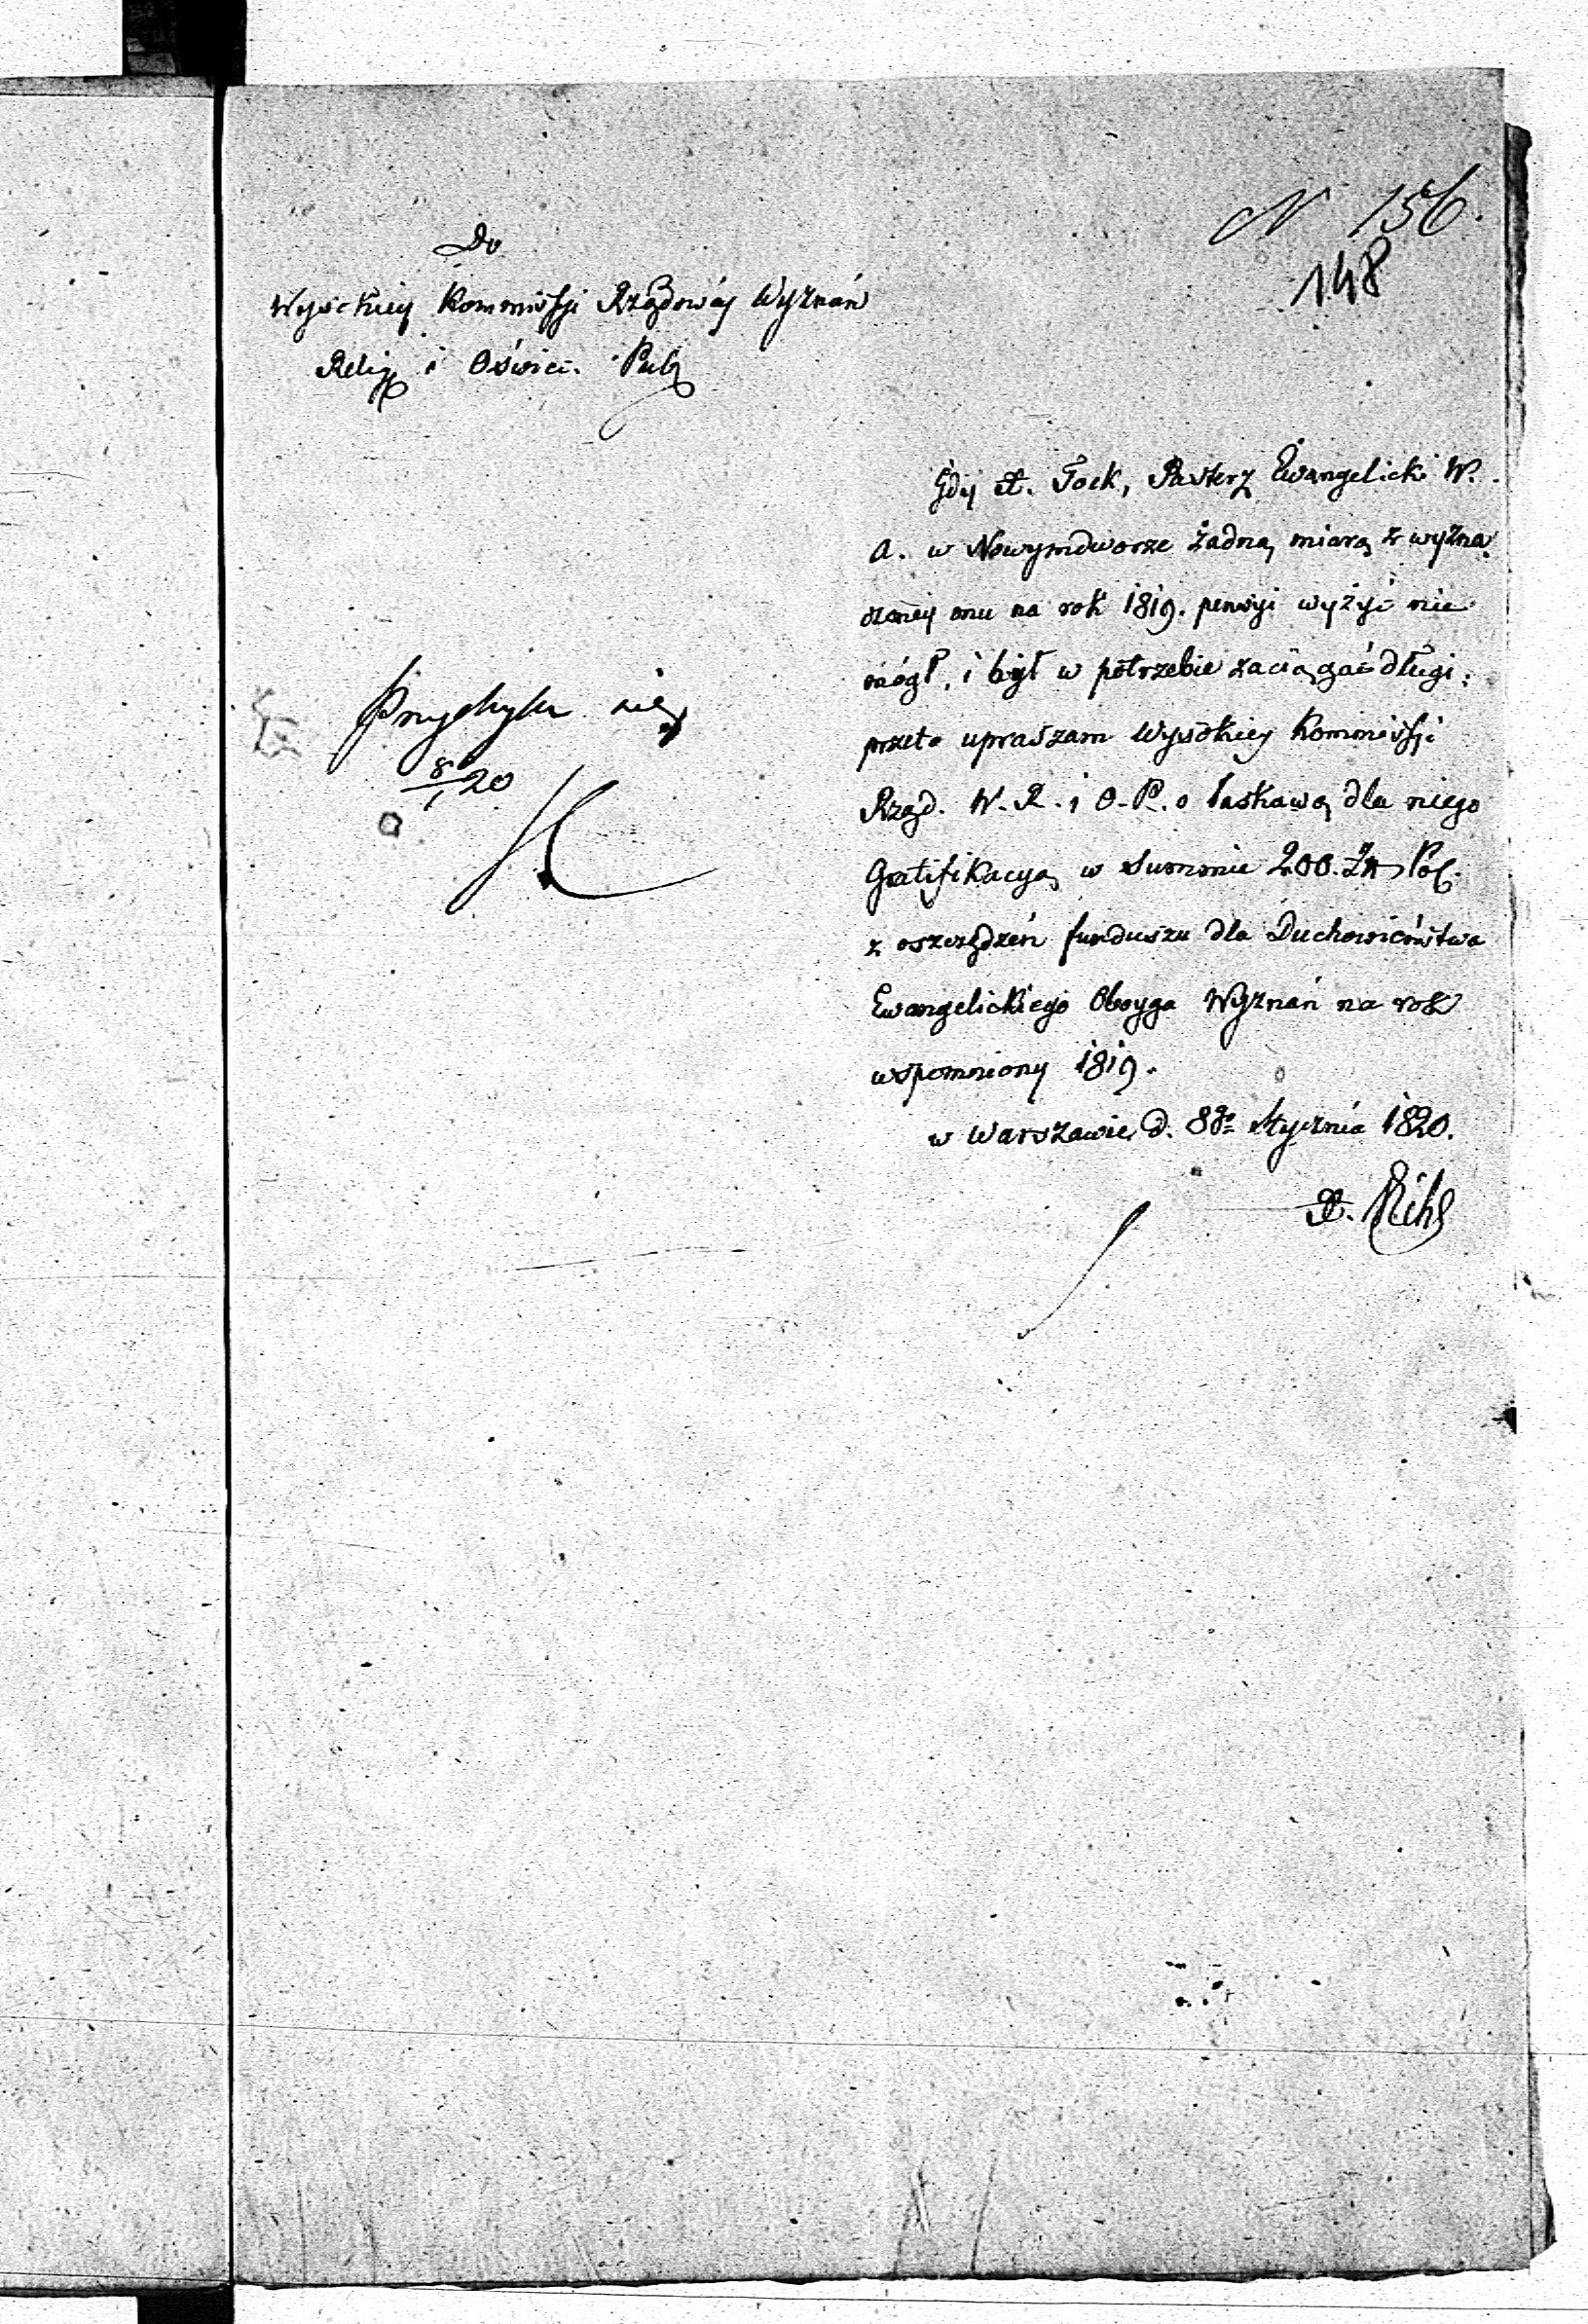 N 156.
148
Do
Wysokiey Kommissji Rządowéy Wyznań
Relig: i Oświec. Publ
Gdy X. Tock, Pasterz Ewangelicki W.
A. w Nowymdworze żadną miarą z wyzna-
czoney mu na rok 1819. pensyi wyżyć nie
mógł, i był w potrzebie zaciągać długi:
przeto upraszam Wysokiey Kommissji
Rząd. W. R. i O. P. o łaskawą dla niego
Gratifikacyą w Summie 200. Zł Pol.
z oszczędzeń funduszu dla Duchowieństwa
Ewangelickiego Oboyga Wyznań na rok
wspomniony 1819.
w Warszawie d. 8go Stycznia 1820.
Przychyla się
8/1 20